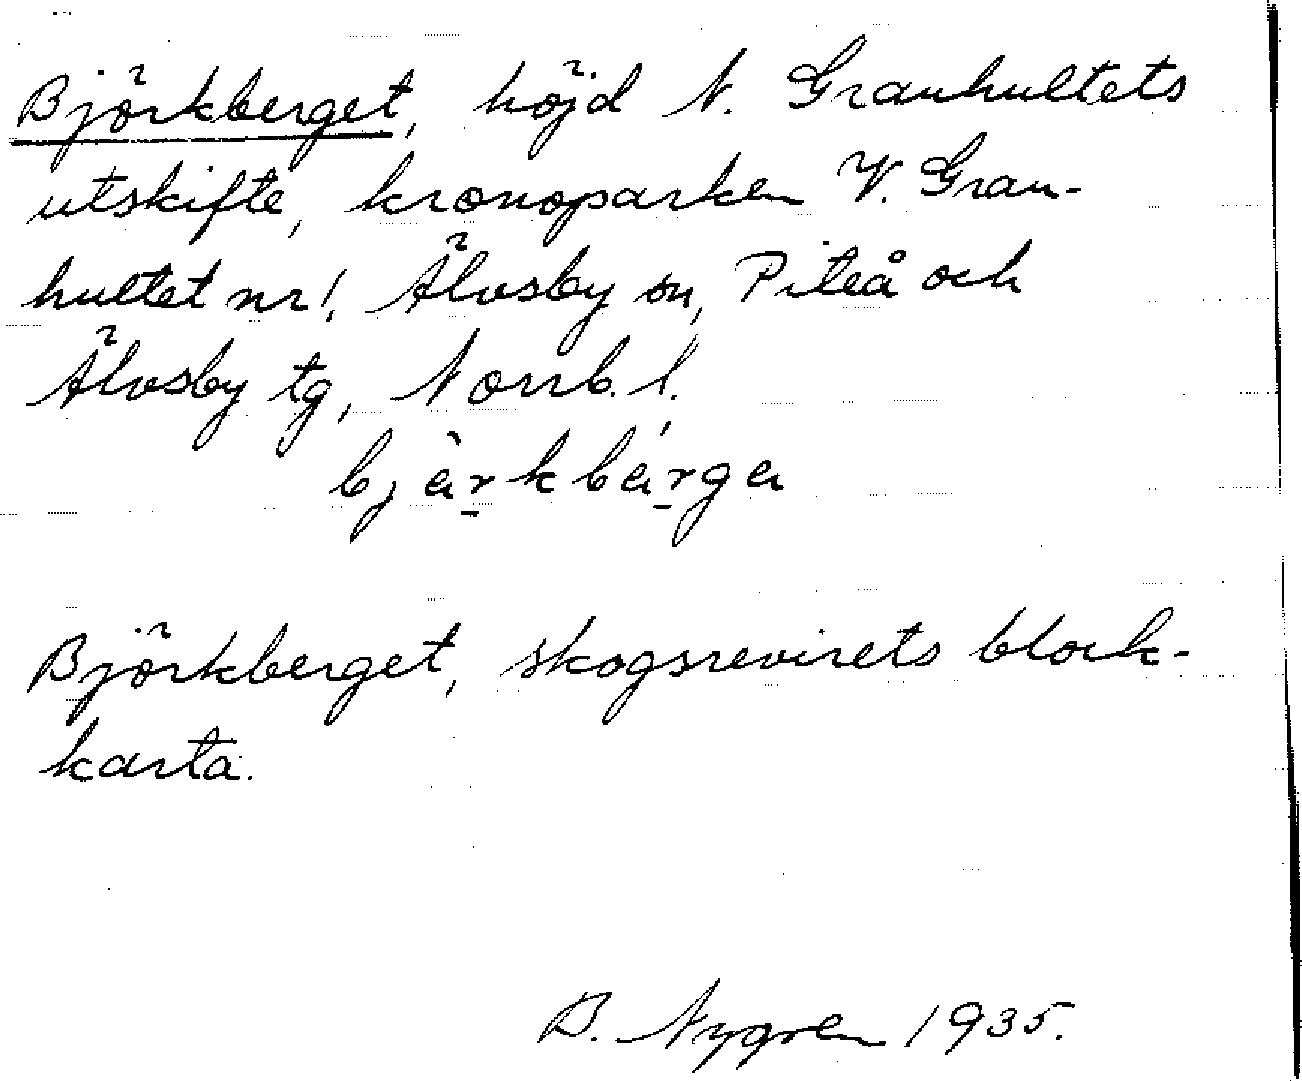 Björkberget, höjd N. Granhultets
utskifte, kronoparken V. Gran-
hultet nr 1, Älvsby sn, Piteå och
Älvsby tg, Norrb. l.
bjèrkbérga
Björkberget, skogsrevirets block-
karta.
B. Nygren 1935.